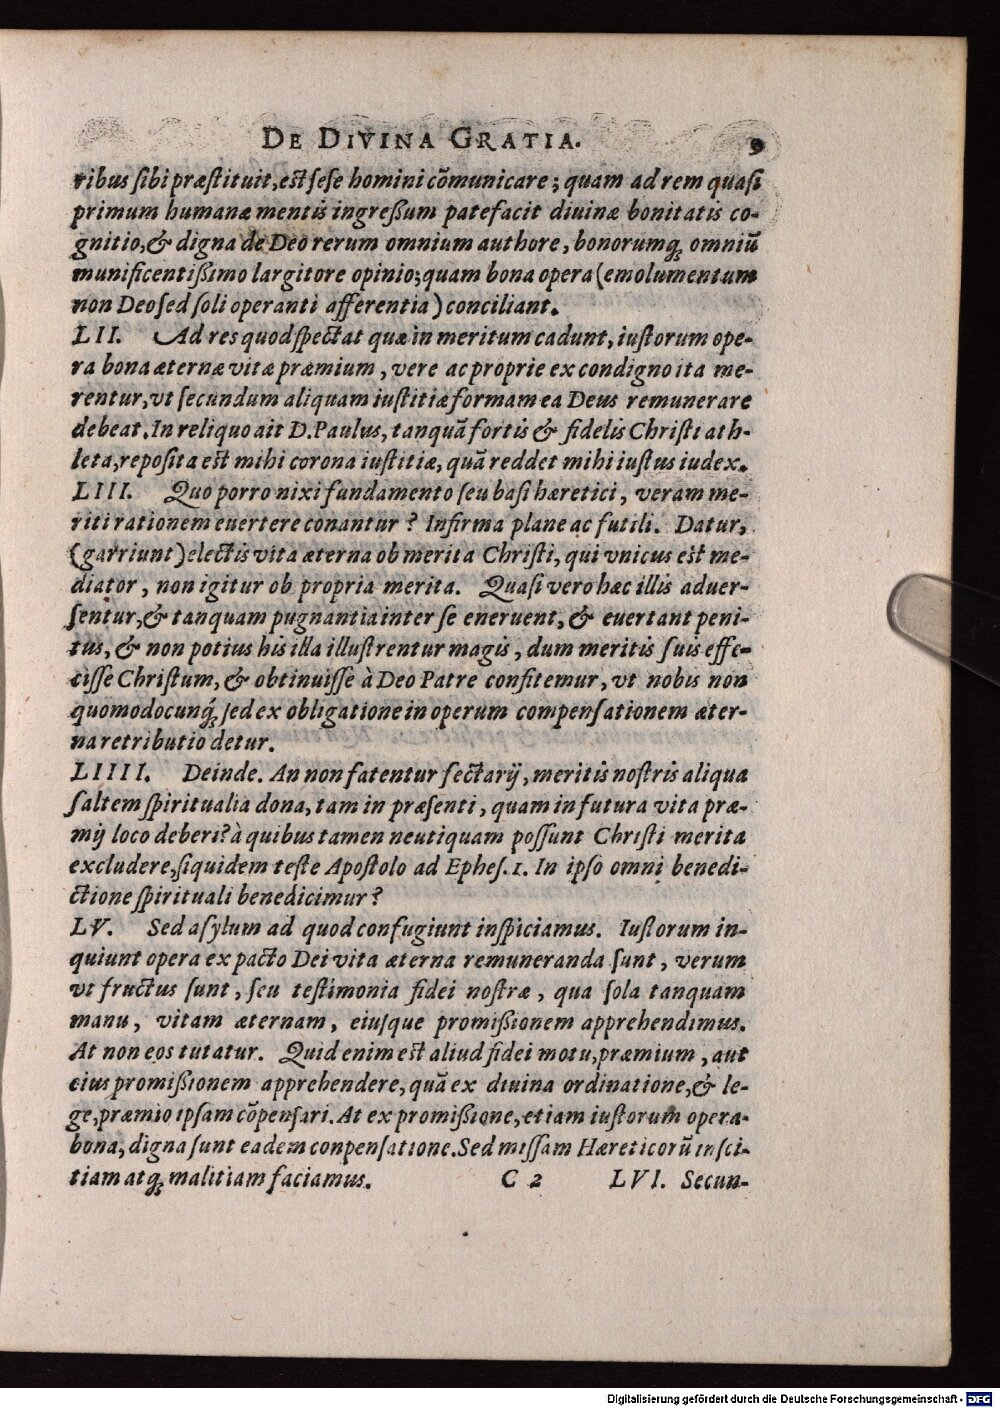 DE DIVINA GRATIA. 9
ribus sibi præstituit, est sese homini cõmunicare; quam ad rem quasi
primum humanæ mentis ingreßum patefacit diuinæ bonitatis co-
gnitio, & digna de Deo rerum omnium authore, bonorumq́; omniũ
munificentißimo largitore opinio; quam bona opera (emolumentum
non Deo sed soli operanti afferentia) conciliant.
LII. Ad res quod spectat quæ in meritum cadunt, iustorum ope-
ra bona æternæ vitæ præmium, vere ac proprie ex condigno ita me-
rentur, vt secundum aliquam iustitiæ formam ea Deus remunerare
debeat. In reliquo ait D. Paulus, tanquã fortis & fidelis Christi ath-
leta, reposita est mihi corona iustitiæ, quã reddet mihi iustus iudex.
LIII. Quo porro nixi fundamento seu basi hæretici, veram me-
riti rationem euertere conantur? Infirma plane ac futili. Datur,
(garriunt) electis vita æterna ob merita Christi, qui vnicus est me-
diator, non igitur ob propria merita. Quasi vero hæc illis aduer-
sentur, & tanquam pugnantia inter se eneruent, & euertant peni-
tus, & non potius his illa illustrentur magis, dum meritis suis effe-
cisse Christum, & obtinuisse à Deo Patre confitemur, vt nobis non
quomodocunq́; sed ex obligatione in operum compensationem æter-
na retributio detur.
LIIII. Deinde. An non fatentur sectarij, meritis nostris aliqua
saltem spiritualia dona, tam in præsenti, quam in futura vita præ-
mij loco deberi? à quibus tamen neutiquam possunt Christi merita
excludere, siquidem teste Apostolo ad Ephes. 1. In ipso omni benedi-
ctione spirituali benedicimur?
LV. Sed asylum ad quod confugiunt inspiciamus. Iustorum in-
quiunt opera ex pacto Dei vita æterna remuneranda sunt, verum
vt fructus sunt, seu testimonia fidei nostræ, qua sola tanquam
manu, vitam æternam, eiusque promißionem apprehendimus.
At non eos tutatur. Quid enim est aliud fidei motu, præmium, aut
eius promißionem apprehendere, quã ex diuina ordinatione, & le-
ge, præmio ipsam cõpensari. At ex promißione, etiam iustorum opera
bona, digna sunt eadem conpensatione. Sed missam Hæreticorũ insci-
tiam atq́; malitiam faciamus. C 2 LVI. Secun-
Digitalisierung gefördert durch die Deutsche Forschungsgemeinschaft - DFG